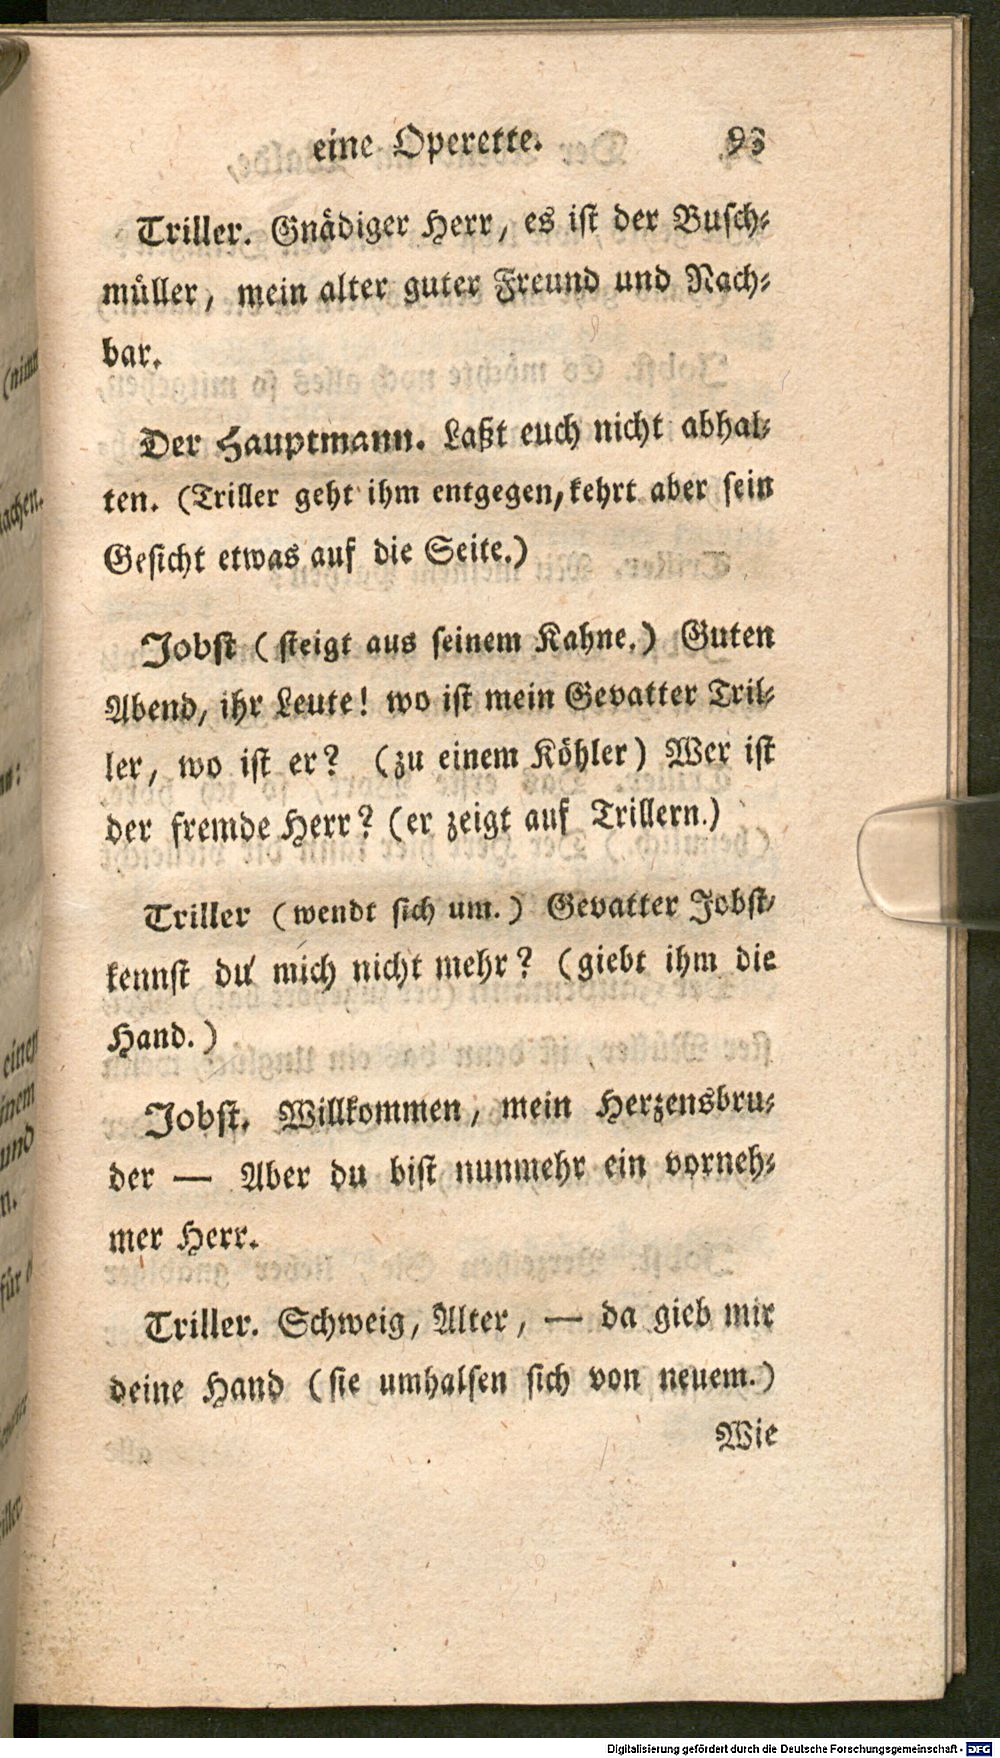 eine Operette. 93
Triller. Gnädiger Herr, es ist der Busch-
müller, mein alter guter Freund und Nach-
bar.
Der Hauptmann. Laßt euch nicht abhal-
ten. (Triller geht ihm entgegen, kehrt aber sein
Gesicht etwas auf die Seite.)
Jobst (steigt aus seinem Kahne.) Guten
Abend, ihr Leute! wo ist mein Gevatter Tril-
ler, wo ist er? (zu einem Köhler) Wer ist
der fremde Herr? (er zeigt auf Trillern.)
Triller (wendt sich um.) Gevatter Jobst,
kennst du mich nicht mehr? (giebt ihm die
Hand.)
Jobst. Willkommen, mein Herzensbru-
der — Aber du bist nunmehr ein vorneh-
mer Herr.
Triller. Schweig, Alter, — da gieb mir
deine Hand (sie umhalsen sich von neuem.)
Wie
Digitalisierung gefördert durch die Deutsche Forschungsgemeinschaft - DFG